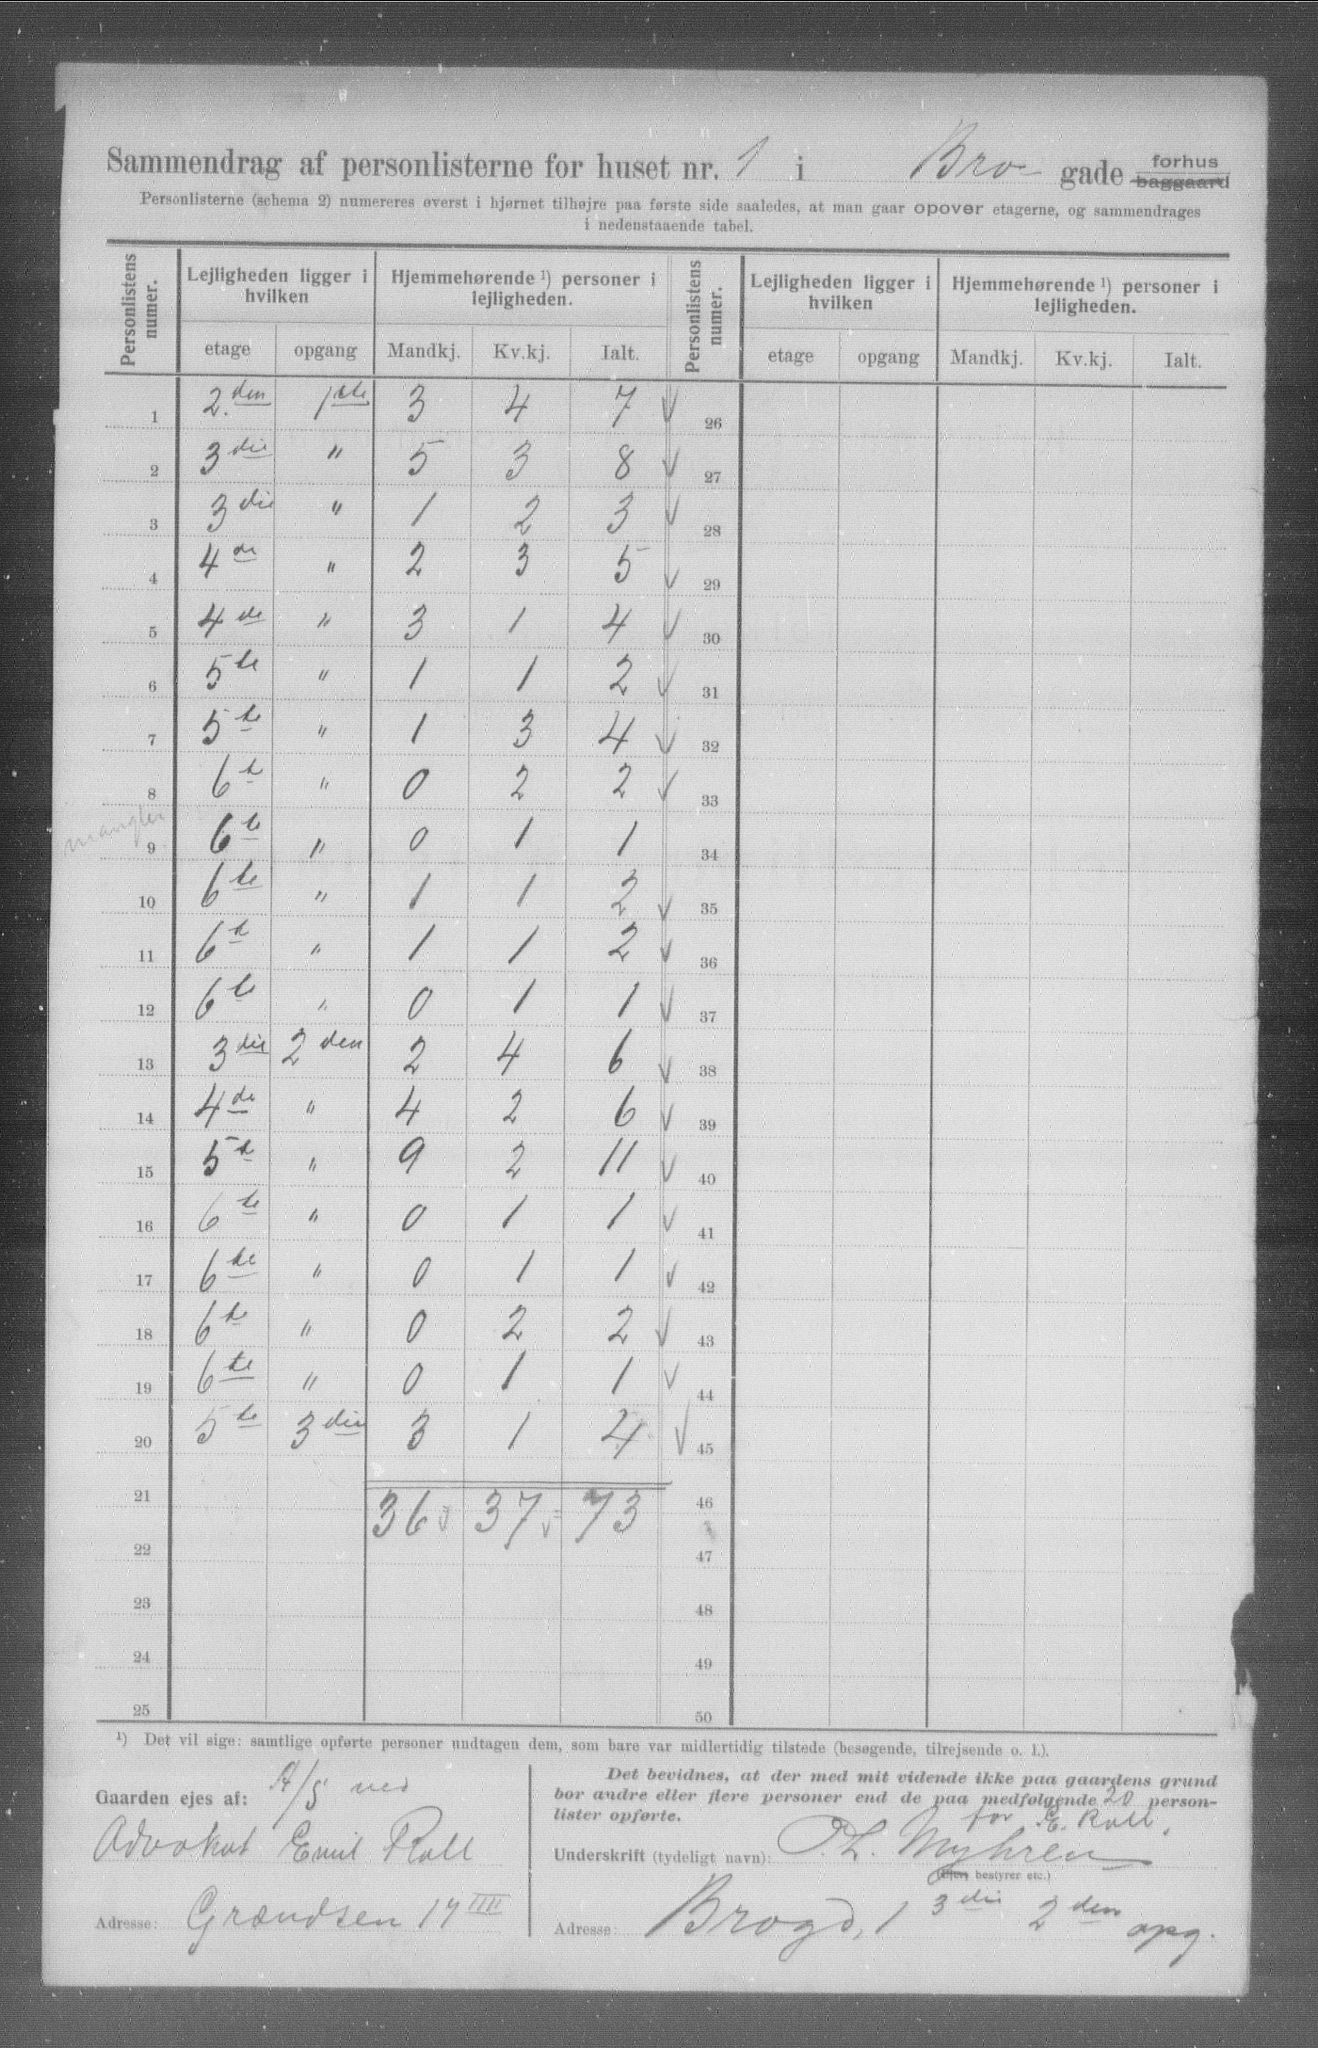 Sammendrag af personlisterne for huset nr. 1 i Bro- gade forhus baggaard
Personlisterne (schema 2) numereres øverst i hjørnet tilhøjre paa første side saaledes, at man gaar opover etagerne, og sammendrages
i nedenstaaende tabel.
Personlistens numer. Lejligheden ligger i hvilken Hjemmehørende ¹) personer i lejligheden. Personlistens numer. Lejligheden ligger i hvilken Hjemmehørende ¹) personer i lejligheden.
etage opgang Mandkj. Kv.kj. Ialt. etage opgang Mandkj. Kv.kj. Ialt.
1 2.den 1ste 3 4 7 √ 26
2 3die " 5 3 8 √ 27
3 3die " 1 2 3 √ 28
4 4de " 2 3 5 √ 29
5 4de " 3 1 4 √ 30
6 5te " 1 1 2 √ 31
7 5te " 1 3 4 √ 32
8 6te " 0 2 2 √ 33
mangler 9 6te " 0 1 1 34
10 6te " 1 1 2 √ 35
11 6te " 1 1 2 √ 36
12 6te " 0 1 1 √ 37
13 3die 2den 2 4 6 √ 38
14 4de " 4 2 6 √ 39
15 5te " 9 2 11 √ 40
16 6te " 0 1 1 √ 41
17 6te " 0 1 1 √ 42
18 6te " 0 2 2 √ 43
19 6te " 0 1 1 √ 44
20 5te 3die 3 1 4 √ 45
21 36 37 73 46
22 47
23 48
24 49
25 50
¹) Det vil sige: samtlige opførte personer undtagen dem, som bare var midlertidig tilstede (besøgende, tilrejsende o. l.).
Gaarden ejes af: A/S ved
Advokat Emil Roll
Adresse: Grændsen 17 IIII
Det bevidnes, at der med mit vidende ikke paa gaardens grund
bor andre eller flere personer end de paa medfølgende 20 person-
lister opførte.
for E. Roll.
Underskrift (tydeligt navn): O. L. Myhren
(Ejer, bestyrer etc.)
Adresse: Brogd, 1 3die 2den opg.